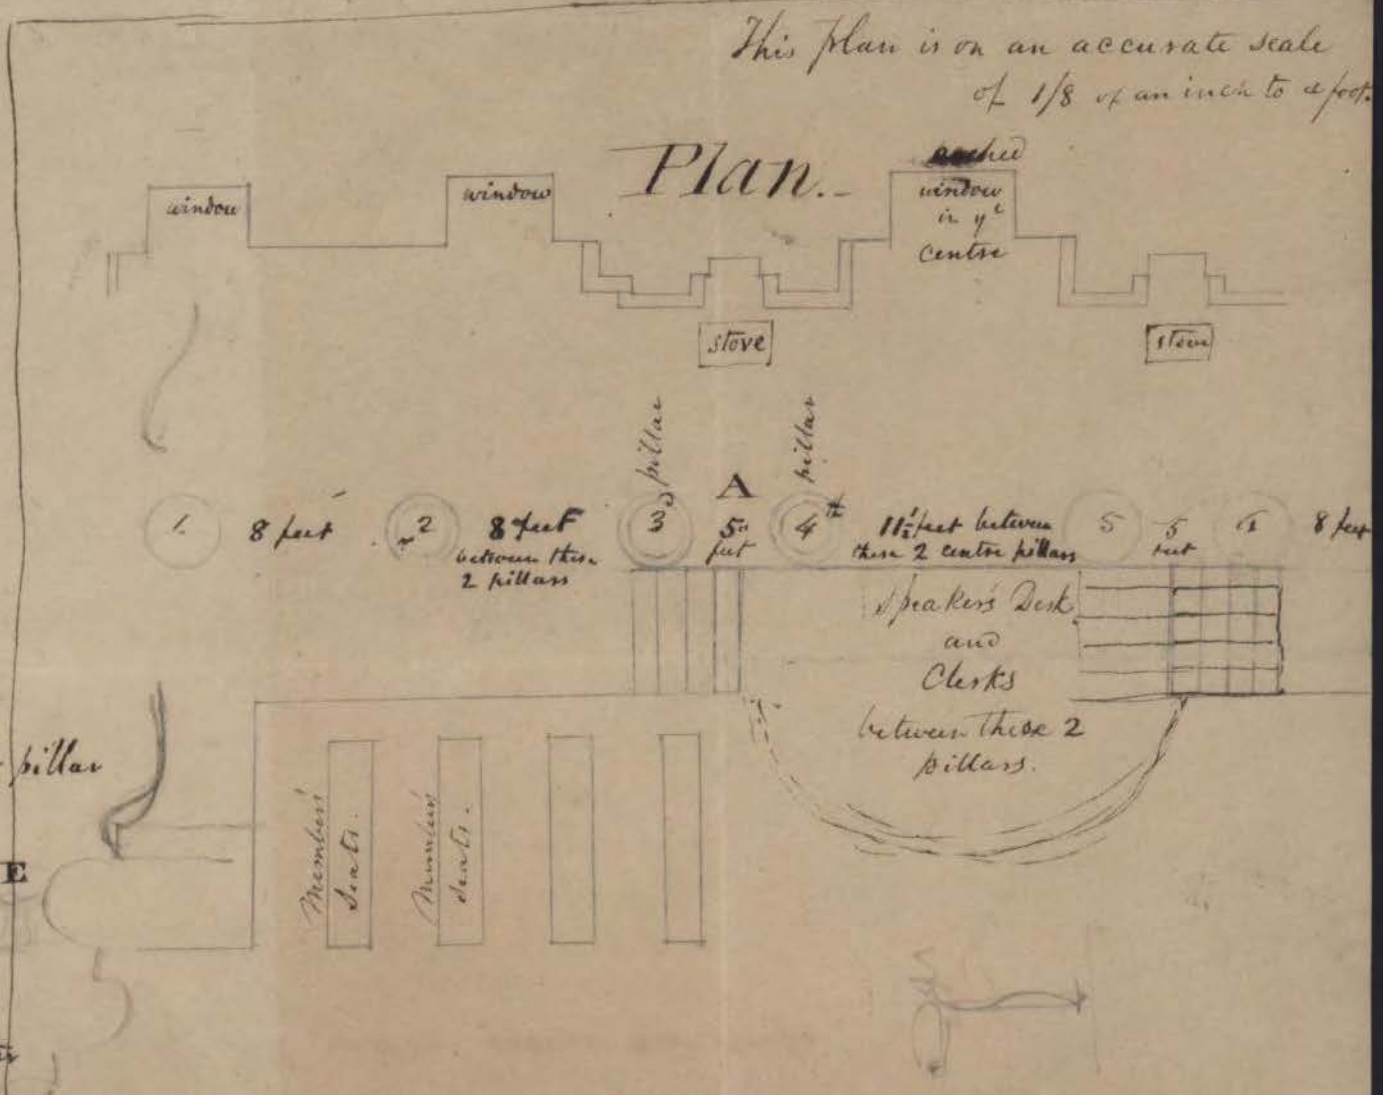 This plan is on an accurate scale
of 1/8 of an inch to a foot.
Plan.
window
window
arched
window
in yᵉ
centre
stove
stove
pillar
pillar
A
1.
8 feet
2
8 feet
between these
2 pillars
3ᵈ
5
feet
4ᵗʰ
11½ feet between
these 2 centre pillars
5
5
feet
8 feet
Speakers Desk
and
Clerks
between these 2
pillars.
pillar
E
Members
Seats.
Members
seats.